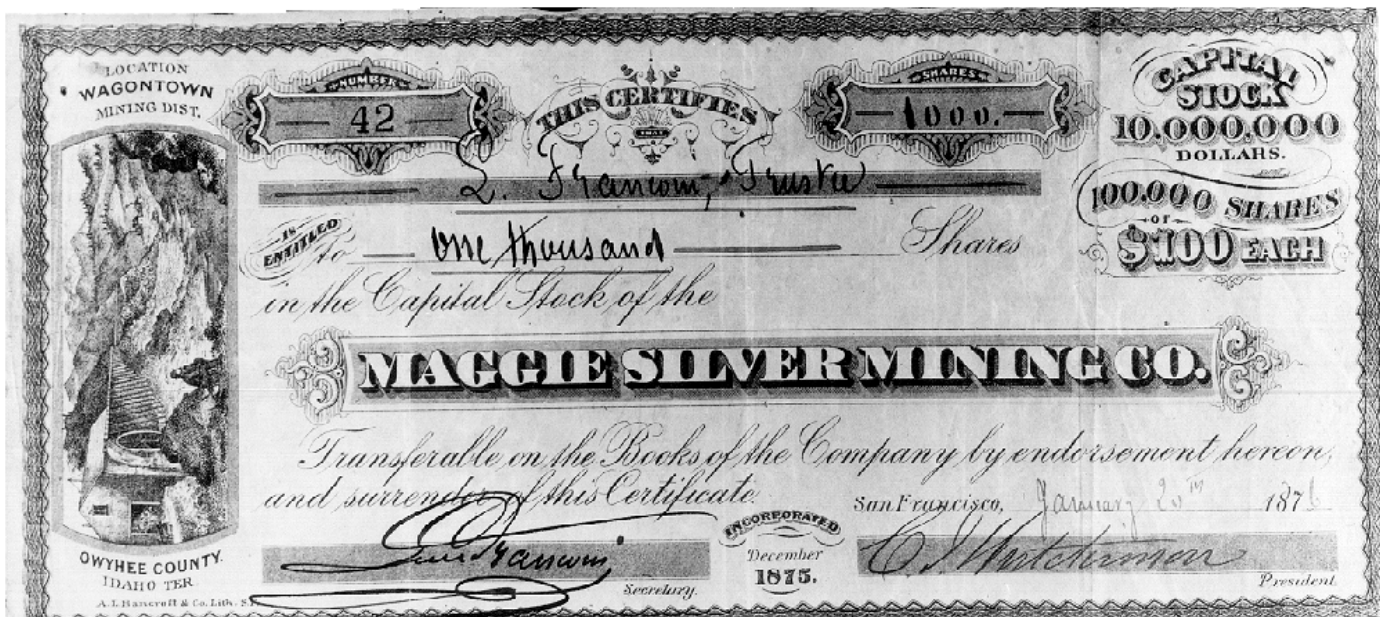 LOCATION
WAGONTOWN
MINING DIST.
NUMBER
42
THIS CERTIFIES
THAT
SHARES
1000.
CAPITAL
STOCK
10,000,000
DOLLARS.
100,000 SHARES
OF
$100 EACH
L. Franconi, Trustee
IS
ENTITLED
To one thousand Shares
in the Capital Stock of the
MAGGIE SILVER MINING CO.
Transferable on the Books of the Company by endorsement hereon,
and surrender of this Certificate.
San Francisco, January 20th 1876
INCORPORATED
December
1875.
Secretary.
President.
OWYHEE COUNTY.
IDAHO TER.
A.L. Bancroft & Co. Lith. S.F.